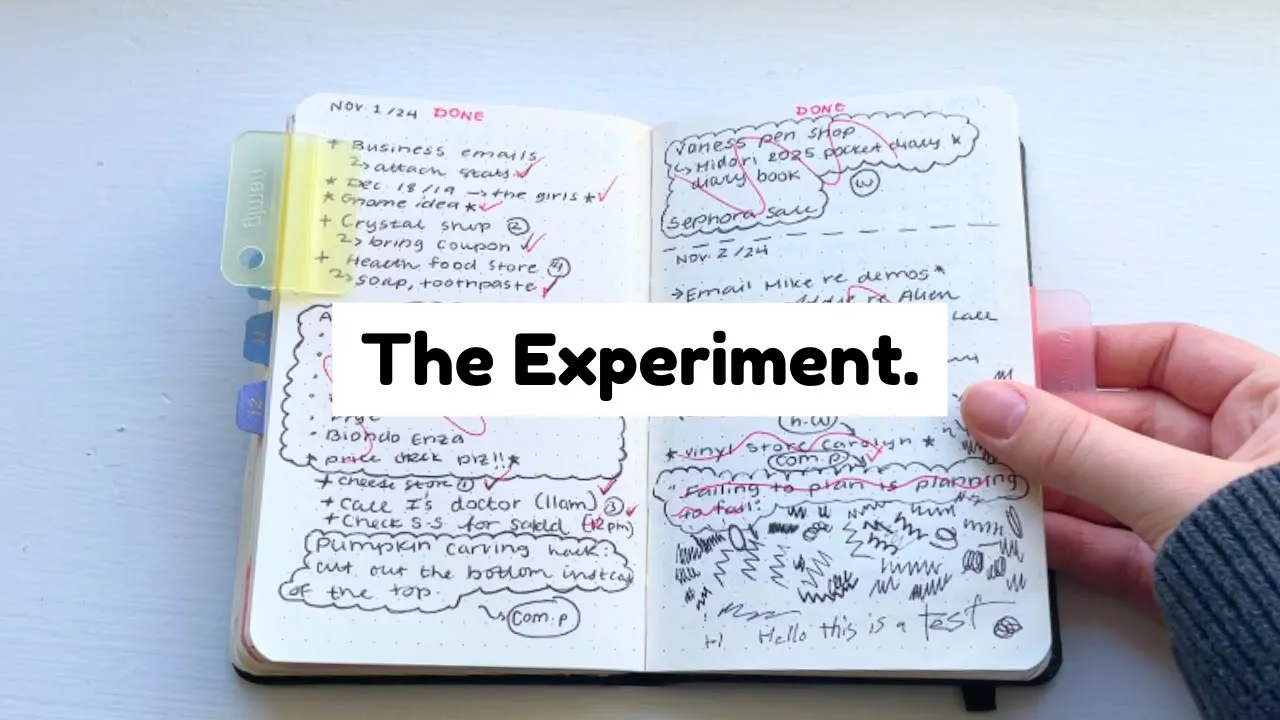 NOV. 1/24 DONE
+ Business emails
↳ attach stats ✓
* Dec. 18/19 → the girls * ✓
* Gnome idea * ✓
+ Crystal shop ②
↳ bring coupon ✓
+ Health food store ④
↳ soap, toothpaste ✓
A
• Biondo Enza
* price check piz!! *
+ cheese store ① ✓
+ Call I's doctor (11am) ③ ✓
+ Check S.S for salad (12 pm)
Pumpkin carving hack:
cut out the bottom instead
of the top.
com.p
DONE
Vaness pen shop
↳ Midori 2025 pocket diary *
diary book
w
Sephora sale
NOV. 2/24
→ Email Mike re demos *
re Alien
The Experiment.
h.w
* vinyl store Carolyn *
com.p
"Failing to plan is planning
to fail."
Hello this is a test